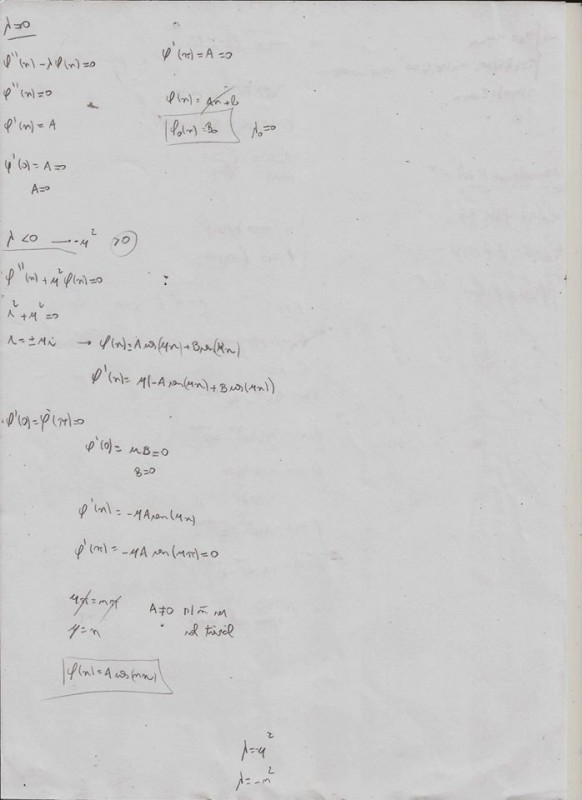 λ=0
φ''(x) - λφ(x) = 0
φ''(x) = 0
φ'(x) = A
φ'(0) = A = 0
A = 0
φ'(π) = A = 0
φ(x) = Ax + B
φ₀(x) = B₀ λ₀ = 0
λ < 0 → -μ² > 0
φ''(x) + μ²φ(x) = 0
r² + μ² = 0
r = ±μi → φ(x) = A cos(μx) + B sen(μx)
φ'(x) = μ(-A sen(μx) + B cos(μx))
φ'(0) = φ'(π) = 0
φ'(0) = μB = 0
B = 0
φ'(x) = -μA sen(μx)
φ'(π) = -μA sen(μπ) = 0
μπ = nπ A ≠ 0 p/ ñ ser
μ = n sol trivial
φ(x) = A cos(nx)
λ = -μ²
λ = -n²